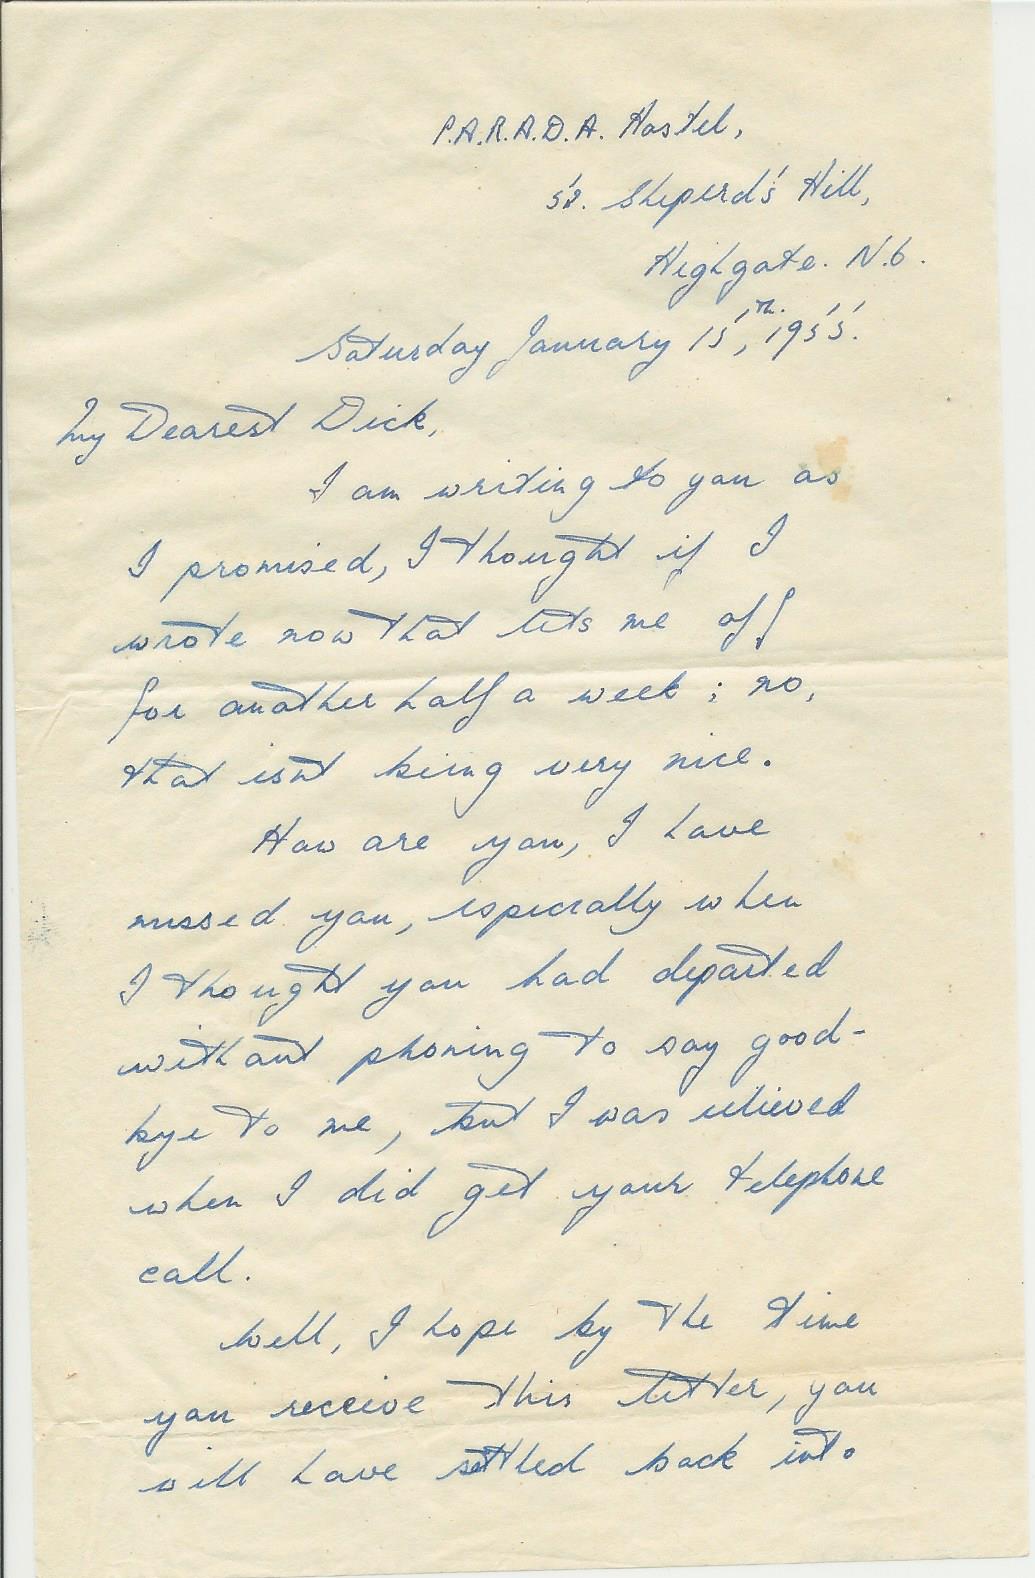 P.A.R.A.D.A. Hostel,
52. Sheperd's Hill,
Highgate. N.6.
Saturday January 15th, 1955.
My Dearest Dick,
I am writing to you as
I promised, I thought if I
wrote now that lets me off
for another half a week; no,
that isnt being very nice.
How are you, I have
missed you, especially when
I thought you had departed
without phoning to say good-
bye to me, but I was relieved
when I did get your telephone
call.
Well, I hope by the time
you receive this letter, you
will have settled back into